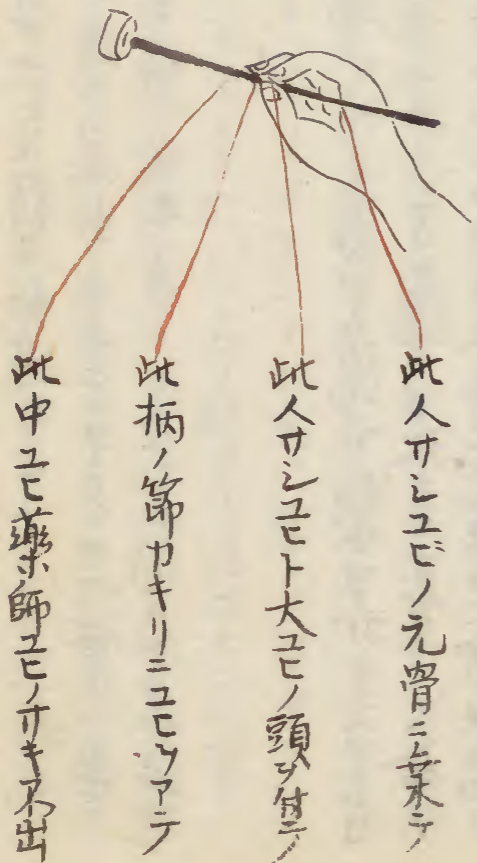 此人サシユビノ元骨ニ乗テ
此人サシユヒト大ユヒノ頭ヲ付テ
此柄ノ節カキリニユヒヲアテ
此中ユヒ薬師ユヒノサキ不出